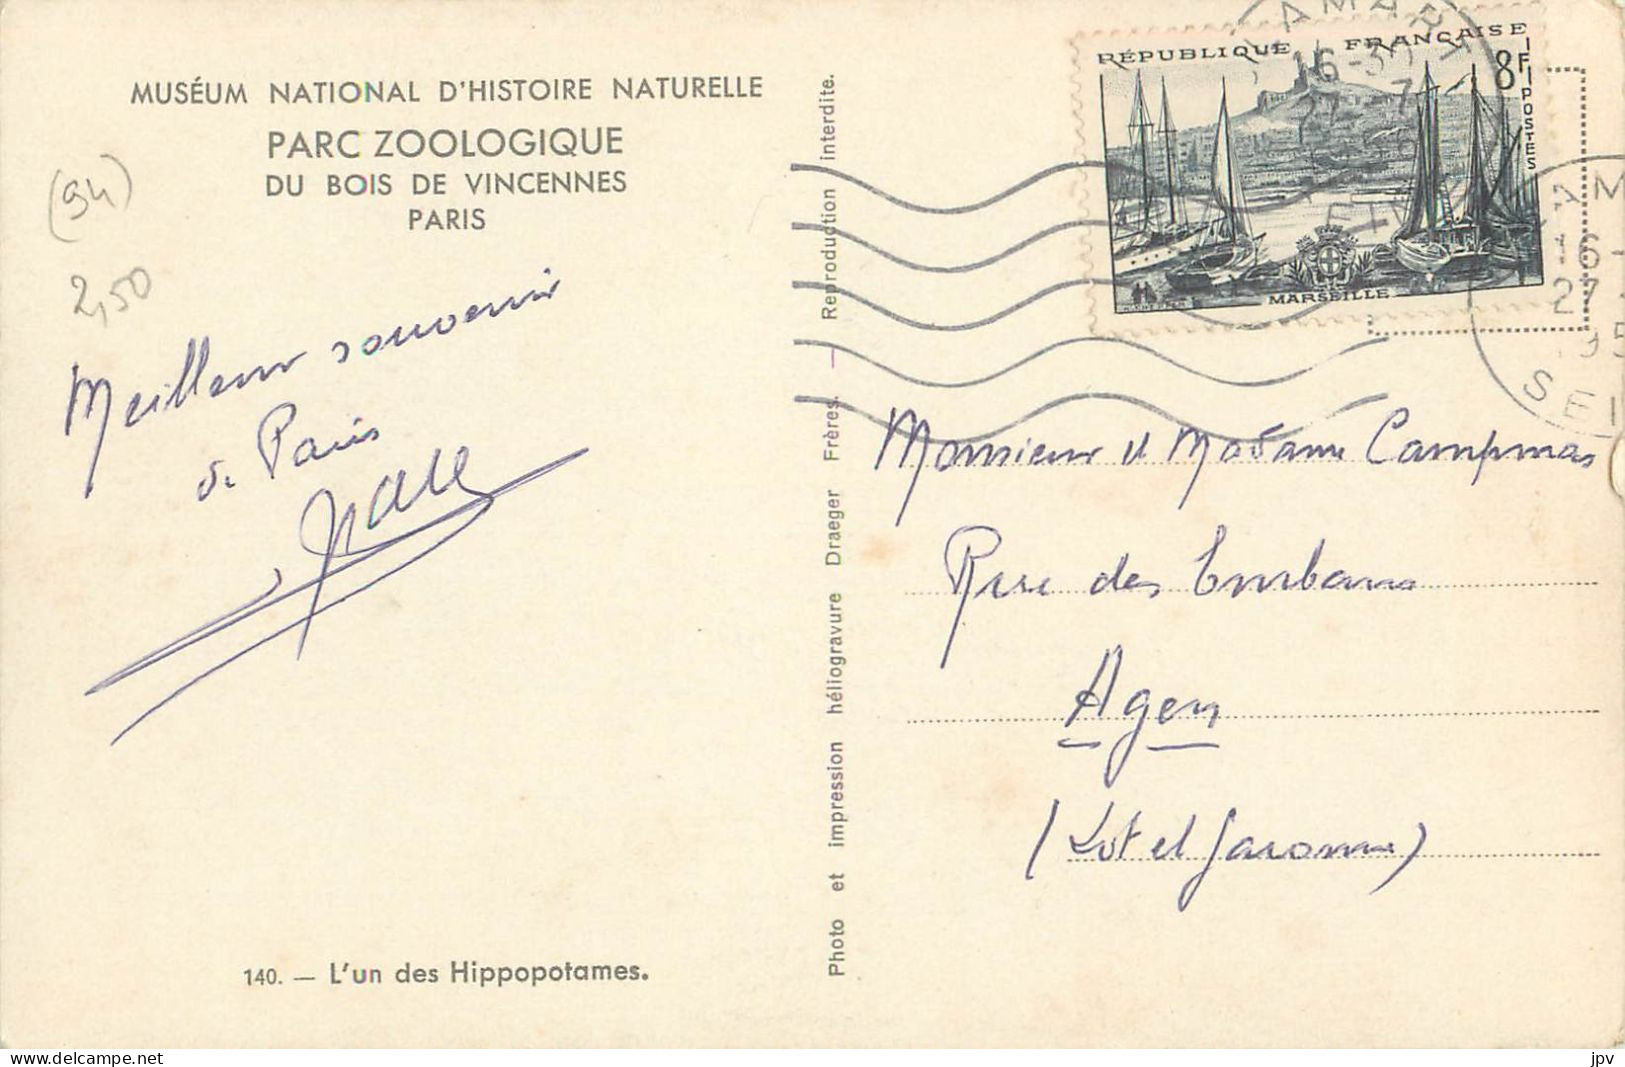 MUSÉUM NATIONAL D'HISTOIRE NATURELLE
PARC ZOOLOGIQUE
DU BOIS DE VINCENNES
PARIS
(94)
2,50
Meilleur souvenir
de Paris
140. — L'un des Hippopotames.
Photo et impression héliogravure Draeger Frères. — Reproduction interdite.
RÉPUBLIQUE FRANÇAISE
8F
POSTES
MARSEILLE
AMAR
16-30
27-7
AM
16-
27
195
SEI
Monsieur et Madame Campmas
Rue des
Agen
(Lot et Garonne)
jpv